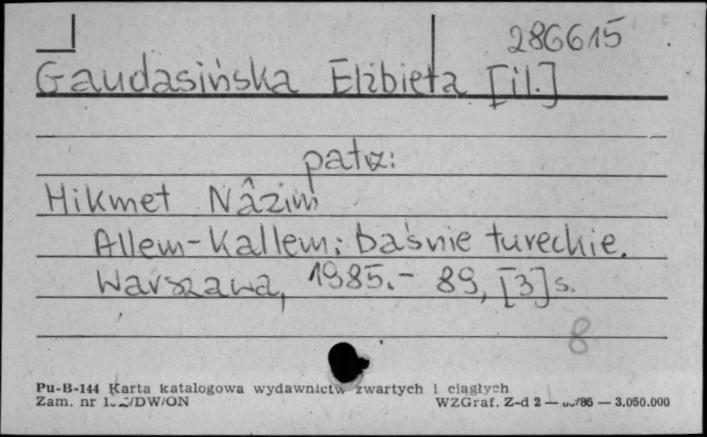 286615
Gaudasińska Elżbieta [il.]
patrz:
Hikmet Nâzim
Allem-Kallem: baśnie tureckie.
Warszawa, 1985.- 89, [3] s.
8
Pu-B-144 Karta katalogowa wydawnictw zwartych i ciągłych
Zam. nr /DW/ON WZGraf. Z-d 2 — /86 — 3.050.000